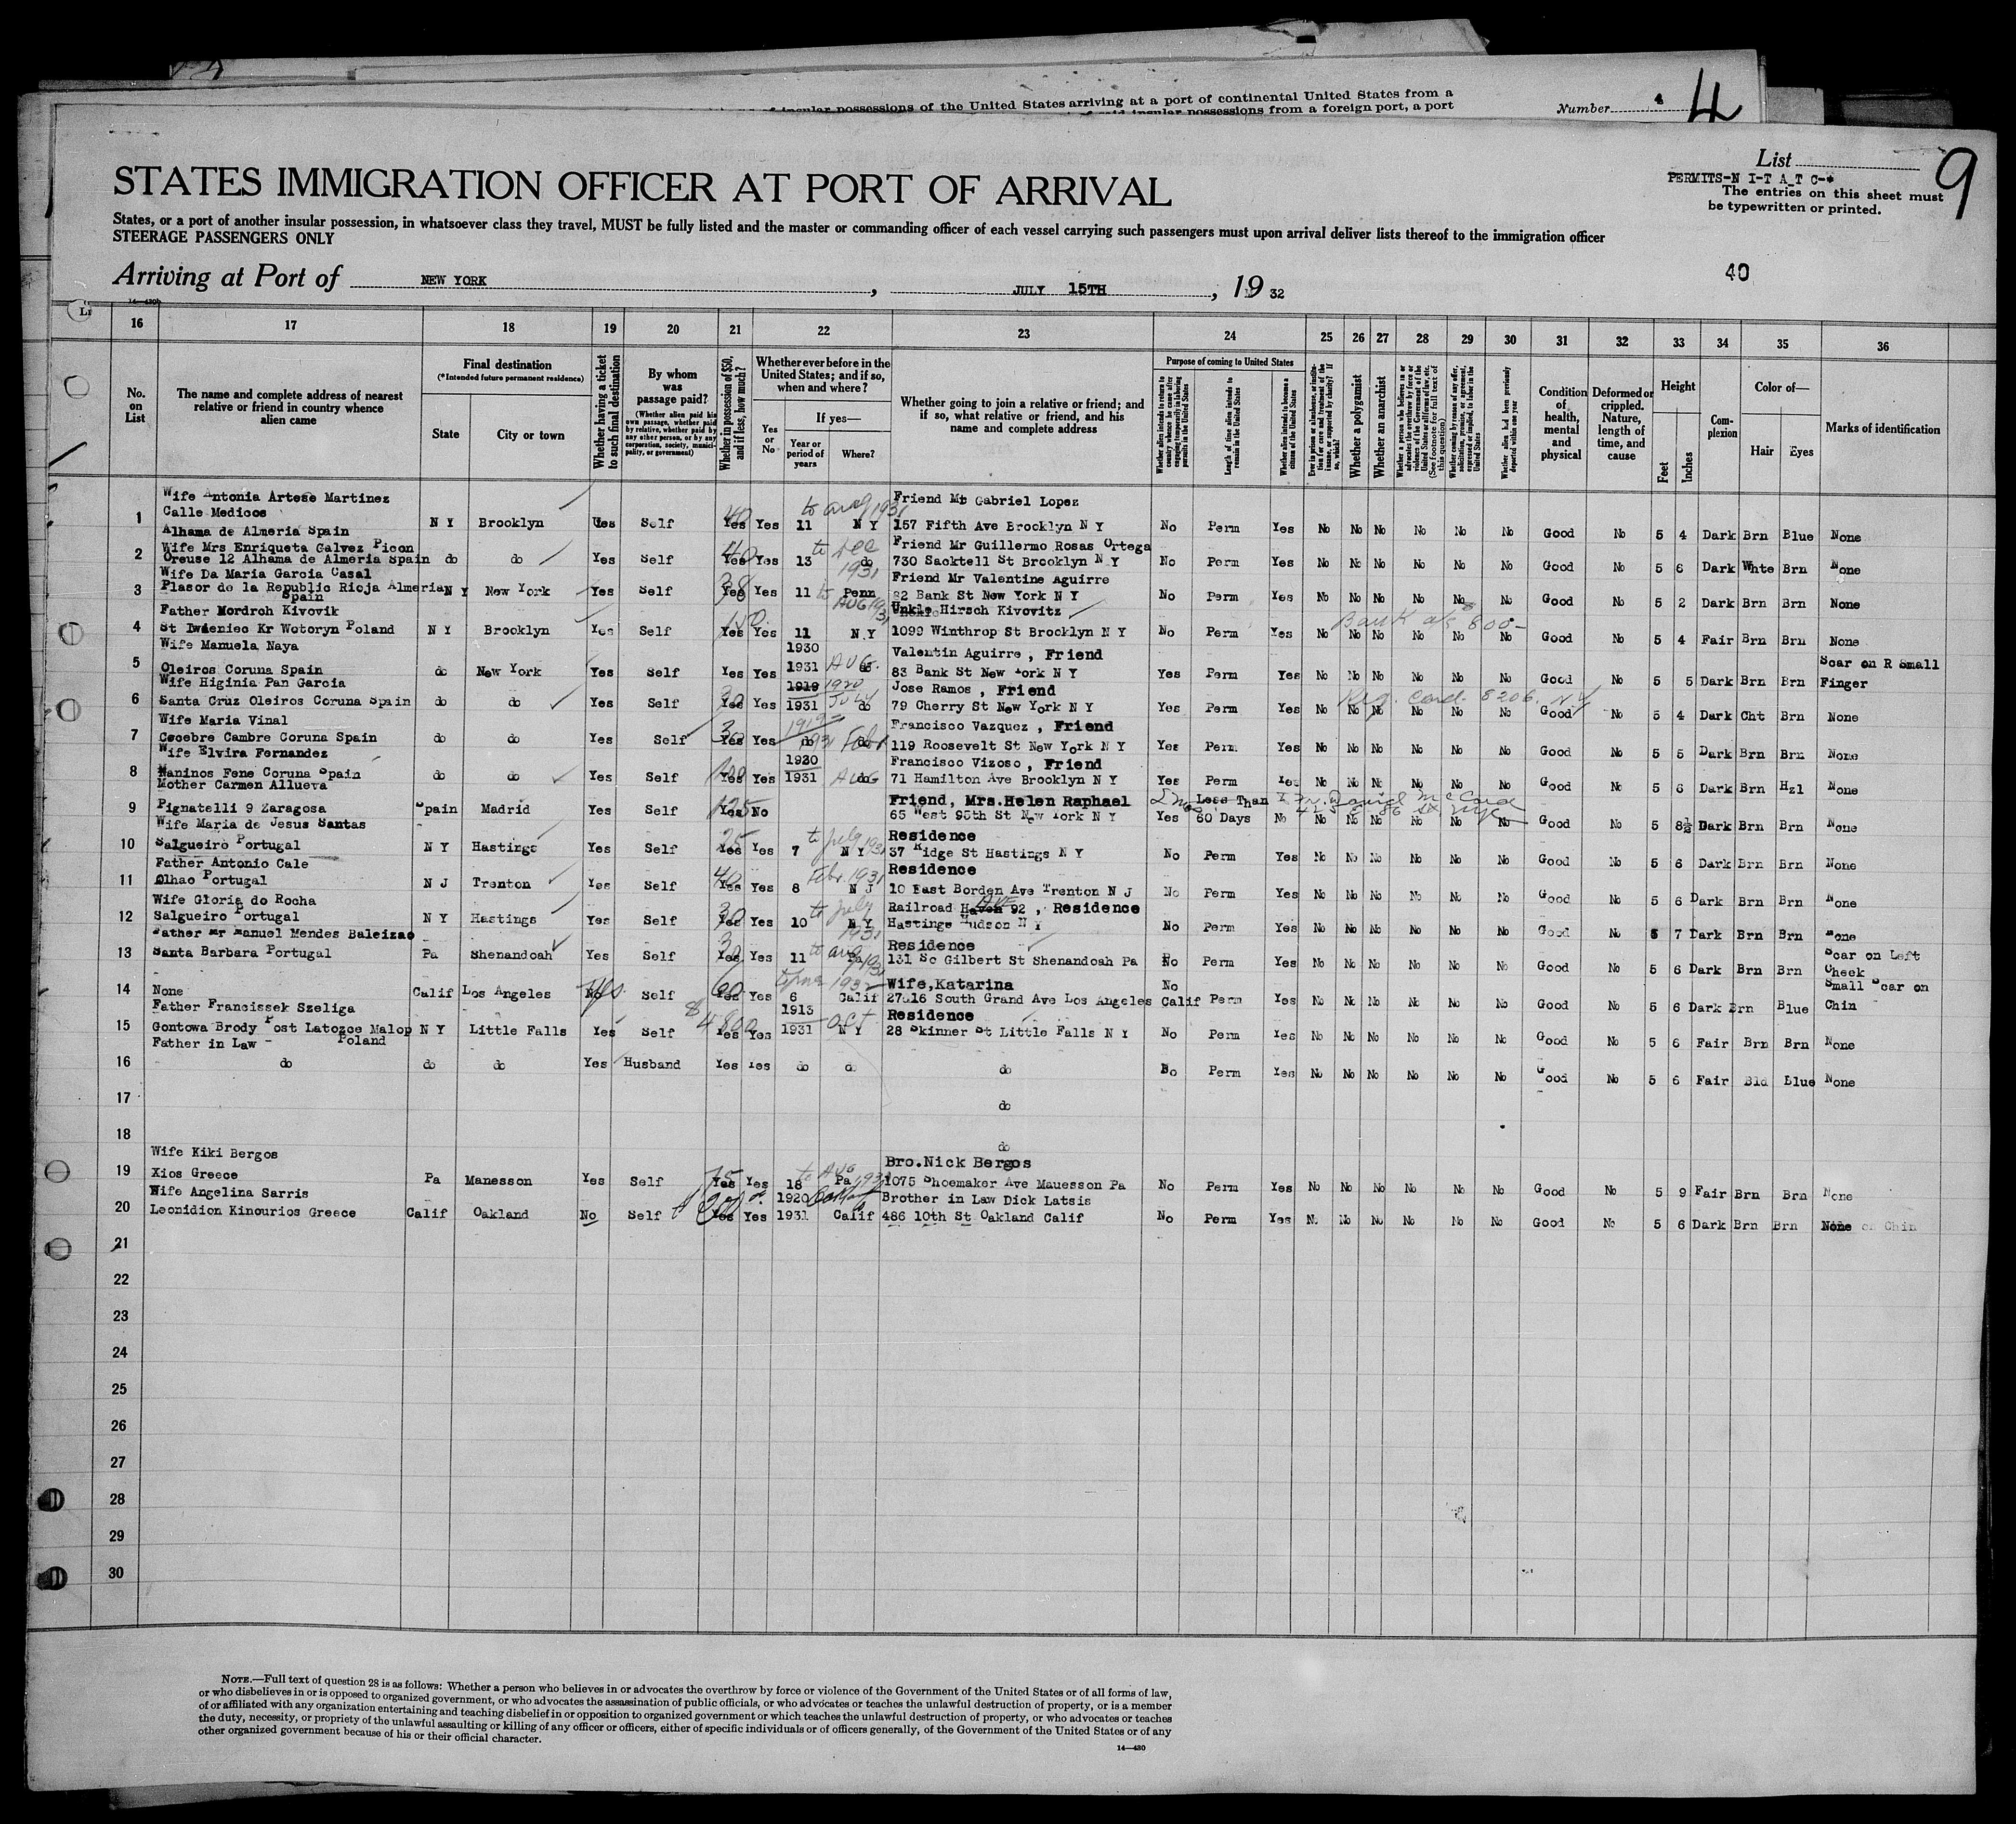 of insular possessions of the United States arriving at a port of continental United States from a
insular possessions from a foreign port, a port
Number 4 4
List 9
PERMITS-N I-T A T C-*
The entries on this sheet must
be typewritten or printed.
STATES IMMIGRATION OFFICER AT PORT OF ARRIVAL
States, or a port of another insular possession, in whatsoever class they travel, MUST be fully listed and the master or commanding officer of each vessel carrying such passengers must upon arrival deliver lists thereof to the immigration officer
STEERAGE PASSENGERS ONLY
Arriving at Port of NEW YORK, JULY 15TH, 19 32
40
14—430
16 17 18 19 20 21 22 23 24 25 26 27 28 29 30 31 32 33 34 35 36
No. on List
The name and complete address of nearest relative or friend in country whence alien came
Final destination
(*Intended future permanent residence)
State
City or town
Whether having a ticket to such final destination
By whom was passage paid?
(Whether alien paid his own passage, whether paid by relative, whether paid by any other person, or by any corporation, society, municipality, or government)
Whether in possession of $50, and if less, how much?
Whether ever before in the United States; and if so, when and where?
Yes or No
If yes—
Year or period of years
Where?
Whether going to join a relative or friend; and if so, what relative or friend, and his name and complete address
Purpose of coming to United States
Whether alien intends to return to country whence he came after engaging temporarily in laboring pursuits in the United States
Length of time alien intends to remain in the United States
Whether alien intends to become a citizen of the United States
Ever in prison or almshouse, or institution for care and treatment of the insane, or supported by charity? If so, which?
Whether a polygamist
Whether an anarchist
Whether a person who believes in or advocates the overthrow by force or violence of the Government of the United States or all forms of law, etc. (See footnote for full text of this question)
Whether coming by reason of any offer, solicitation, promise, or agreement, expressed or implied, to labor in the United States
Whether alien had been previously deported within one year
Condition of health, mental and physical
Deformed or crippled. Nature, length of time, and cause
Height
Feet
Inches
Complexion
Color of—
Hair
Eyes
Marks of identification
Wife Antonia Artese Martinez Friend Mr Gabriel Lopez
Calle Medicos to Aug 1931
1 Alhama de Almeria Spain N Y Brooklyn Yes Self 40 Yes Yes 11 N Y 157 Fifth Ave Brooklyn N Y No Perm Yes No No No No No No Good No 5 4 Dark Brn Blue None
Wife Mrs Enriqueta Galvez Picon to Dec 1931 Friend Mr Guillermo Rosas Ortega
2 Oreuse 12 Alhama de Almeria Spain do do Yes Self 40 Yes Yes 13 do 730 Sacktell St Brooklyn N Y No Perm Yes No No No No No No Good No 5 6 Dark Whte Brn None
Wife Da Maria Garcia Casal Friend Mr Valentine Aguirre
3 Plasor de la Republic Rioja Almeria Spain N Y New York Yes Self 38 Yes Yes 11 Penn 82 Bank St New York N Y No Perm Yes No No No No No No Good No 5 2 Dark Brn Brn None
Father Mordroh Kivovik to AUG 1931 Unkle Hirsch Kivovitz Bank a/c 800-
4 St Iwieniec Kr Wotoryn Poland N Y Brooklyn Yes Self 150 Yes Yes 11 N.Y 1099 Winthrop St Brooklyn N Y No Perm Yes No No No No No No Good No 5 4 Fair Brn Brn None
Wife Manuela Naya 1930 Valentin Aguirre, Friend Scar on R Small
5 Oleiros Coruna Spain do New York Yes Self Yes Yes 1931 AUG. do 83 Bank St New York N Y Yes Perm Yes No No No No No No Good No 5 5 Dark Brn Brn Finger
Wife Higinia Pan Garcia 1919 1920 Jose Ramos, Friend Reg. Card 8206 NY
6 Santa Cruz Oleiros Coruna Spain do do Yes Self 30 Yes Yes 1931 July do 79 Cherry St New York N Y Yes Perm Yes No No No No No No Good No 5 4 Dark Cht Brn None
Wife Maria Vinal 1919 Francisco Vazquez, Friend
7 Cecebre Cambre Coruna Spain do do Yes Self 30 Yes Yes do 1931 Febr do 119 Roosevelt St New York N Y Yes Perm Yes No No No No No No Good No 5 5 Dark Brn Brn None
Wife Elvira Fernandez 1920 Francisco Vizoso, Friend
8 Maninos Fene Coruna Spain do do Yes Self 100 Yes Yes 1931 AUG do 71 Hamilton Ave Brooklyn N Y Yes Perm Yes No No No No No No Good No 5 6 Dark Brn Hzl None
Mother Carmen Allueva Friend, Mrs.Helen Raphael 2 mos Less Than Daniel McCord
9 Pignatelli 9 Zaragosa Spain Madrid Yes Self 125 Yes No 65 West 95th St New York N Y Yes 60 Days No No No No No No No Good No 5 8½ Dark Brn Brn None
Wife Maria de Jesus Santas to July 1931 Residence
10 Salgueiro Portugal N Y Hastings Yes Self 25 Yes Yes 7 N Y 37 Ridge St Hastings N Y No Perm Yes No No No No No No Good No 5 6 Dark Brn Brn None
Father Antonio Cale Febr. 1931 Residence
11 Olhao Portugal N J Trenton Yes Self 40 Yes Yes 8 N J 10 East Borden Ave Trenton N J No Perm Yes No No No No No No Good No 5 6 Dark Brn Brn None
Wife Gloria do Rocha to July 1931 Railroad Haven AVE 92, Residence
12 Salgueiro Portugal N Y Hastings Yes Self 30 Yes Yes 10 N Y Hastings Hudson N Y No Perm Yes No No No No No No Good No 5 7 Dark Brn Brn None
Father Mr Manuel Mendes Baleizao to aug 1931 Residence Scar on Left
13 Santa Barbara Portugal Pa Shenandoah Yes Self 30 Yes Yes 11 Pa 131 So Gilbert St Shenandoah Pa No Perm Yes No No No No No No Good No 5 6 Dark Brn Brn Cheek
1932 Wife,Katarina No Small Scar on
14 None Calif Los Angeles No Yes. Self 60 Yes Yes 6 Calif 27816 South Grand Ave Los Angeles Calif Perm Yes No No No No No No Good No 5 6 Dark Brn Blue Chin
Father Francissek Szeliga 1913 Residence
15 Gontowa Brody Post Latozce Malop Poland N Y Little Falls Yes Self $4800 Yes Yes 1931 Oct N Y 28 Skinner St Little Falls N Y No Perm Yes No No No No No No Good No 5 6 Fair Brn Brn None
Father in Law -
16 do do do Yes Husband Yes Yes do do do No Perm Yes No No No No No No Good No 5 6 Fair Bld Blue None
17 do
18 do
Wife Kiki Bergos to AUG 1931 Bro.Nick Bergos
19 Xios Greece Pa Manesson Yes Self 75 Yes Yes 18 Pa 1075 Shoemaker Ave Mauesson Pa No Perm Yes No No No No No No Good No 5 9 Fair Brn Brn None
Wife Angelina Sarris 1920 Brother in Law Dick Latsis
20 Leonidion Kinourios Greece Calif Oakland No Self Yes Yes 1931 Calif 486 10th St Oakland Calif No Perm Yes No No No No No No Good No 5 6 Dark Brn Brn None on Chin
21
22
23
24
25
26
27
28
29
30
NOTE.—Full text of question 28 is as follows: Whether a person who believes in or advocates the overthrow by force or violence of the Government of the United States or of all forms of law,
or who disbelieves in or is opposed to organized government, or who advocates the assassination of public officials, or who advocates or teaches the unlawful destruction of property, or is a member
of or affiliated with any organization entertaining and teaching disbelief in or opposition to organized government or which teaches the unlawful destruction of property, or who advocates or teaches
the duty, necessity, or propriety of the unlawful assaulting or killing of any officer or officers, either of specific individuals or of officers generally, of the Government of the United States or of any
other organized government because of his or their official character.
14—430